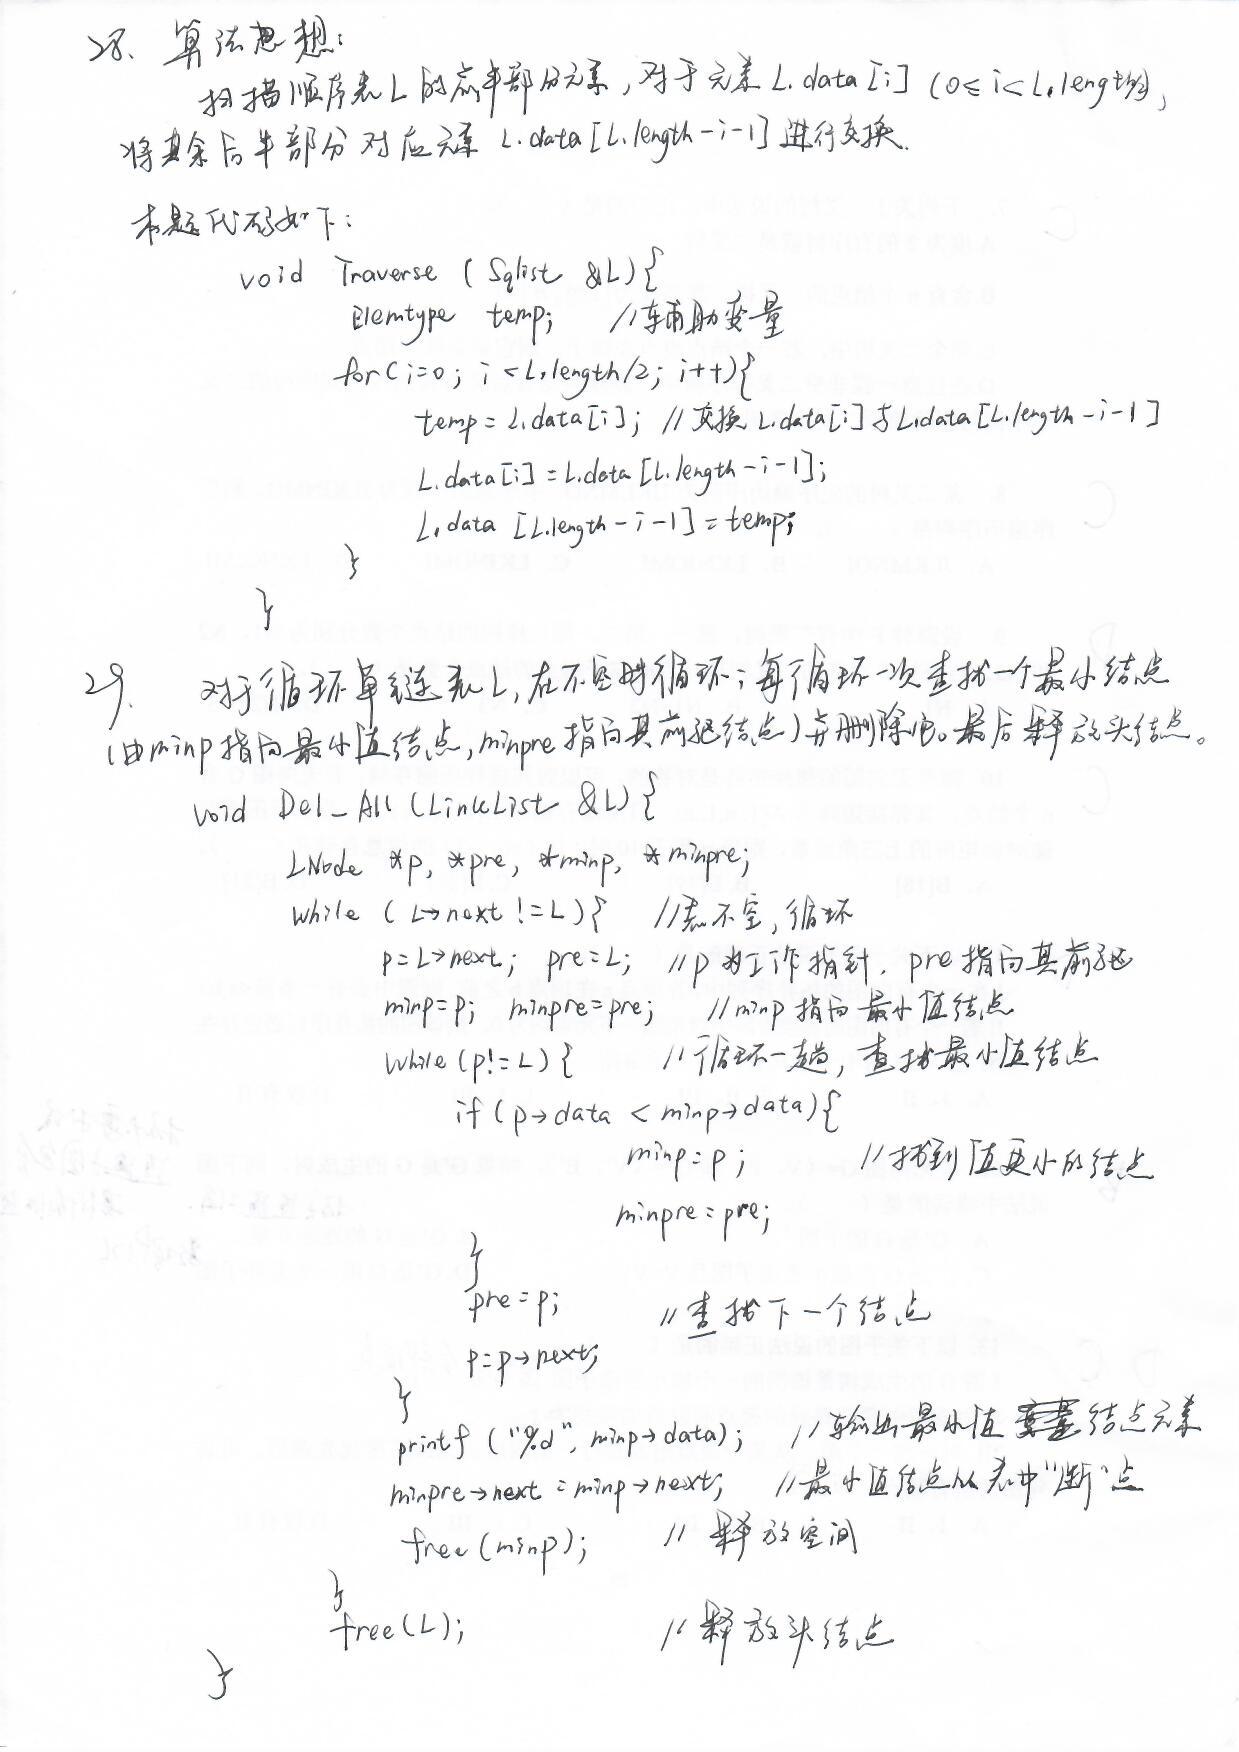 28. 算法思想:
扫描顺序表L的前半部分元素,对于元素L.data[i] (0≤i<L.length/2),
将其余后半部分对应元素L.data[L.length-i-1]进行交换.
本题代码如下:
void Traverse (Sqlist &L){
Elemtype temp; //辅助变量
for(i=0; i<L.length/2; i++){
temp=L.data[i]; //交换L.data[i]与L.data[L.length-i-1]
L.data[i]=L.data[L.length-i-1];
L.data[L.length-i-1]=temp;
}
}
29. 对于循环单链表L,在不空时循环;每循环一次查找一个最小结点
(由minp指向最小值结点,minpre指向其前驱结点)并删除它。最后释放头结点。
void Del_All (LinkList &L){
LNode *p, *pre, *minp, *minpre;
while (L->next!=L){ //表不空,循环
p=L->next; pre=L; //p为工作指针,pre指向其前驱
minp=p; minpre=pre; //minp指向最小值结点
while(p!=L){ //循环一趟,查找最小值结点
if(p->data < minp->data){
minp=p; //找到值更小的结点
minpre=pre;
}
pre=p; //查找下一个结点
p=p->next;
}
printf ("%d", minp->data); //输出最小值结点元素
minpre->next=minp->next; //最小值结点从表中"断"点
free(minp); //释放空间
}
free(L); //释放头结点
}